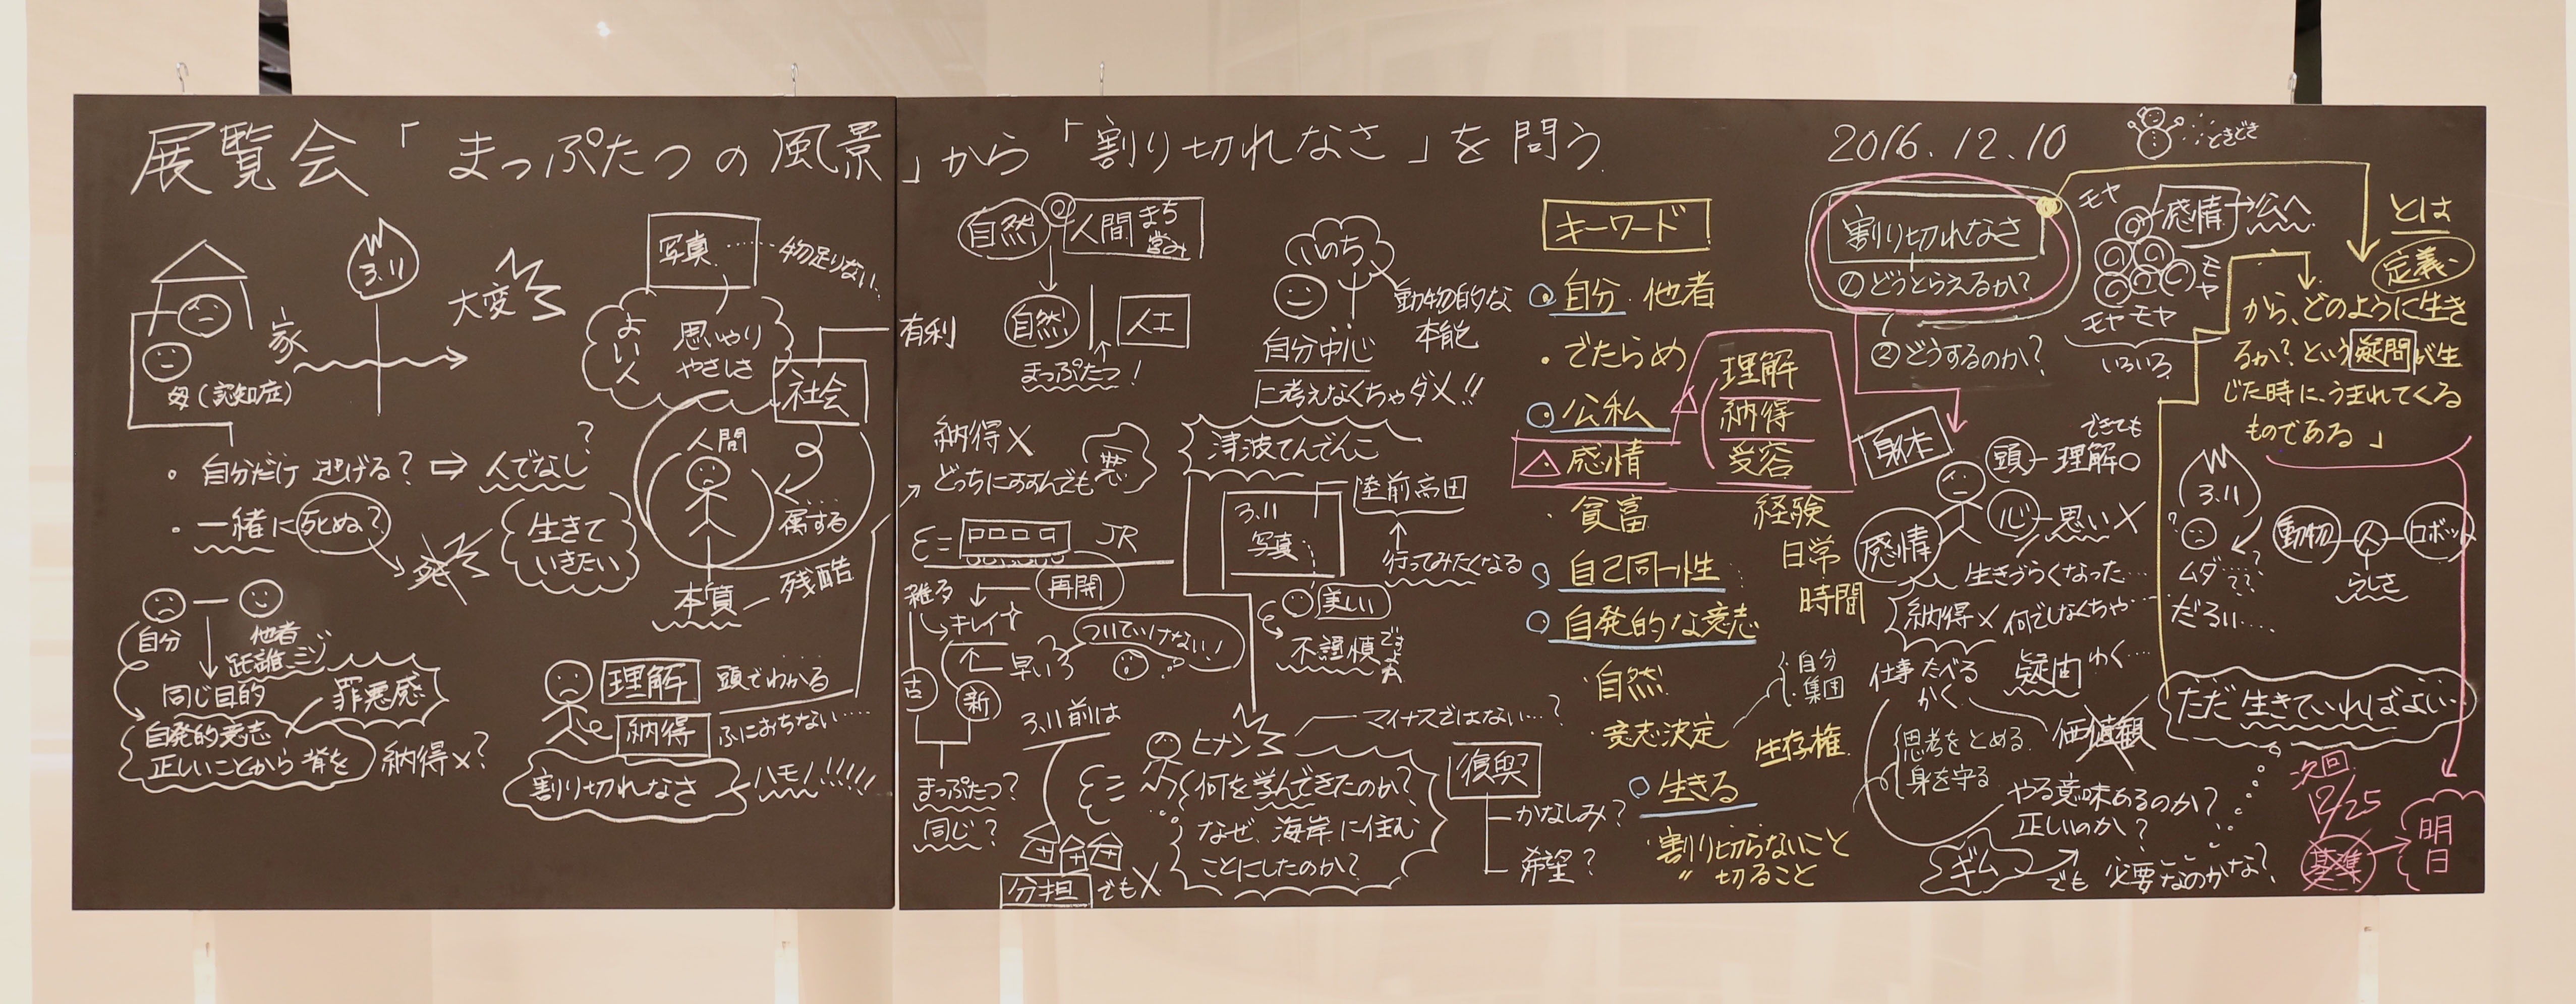 展覧会「まっぷたつの風景」から「割り切れなさ」を問う
2016.12.10
ときどき
3.11
大変
家
母(認知症)
・自分だけ逃げる?⇨人でなし?
・一緒に死ぬ?
死
生きて
いきたい
自分
他者
距離
ミゾ
同じ目的
罪悪感
自発的意志
正しいことから背を
納得×?
写真
物足りない
よい人
思いやり
やさしさ
社会
有利
人間
属する
本質
残酷
理解
頭でわかる
納得
ふにおちない……
割り切れなさ
ハモ!!!!!!
自然
人間
まち
営み
自然
人工
まっぷたつ!
納得×
どっちにすすんでも
悪
JR
再開
雑多
キレイ
早い
ついていけない!
古
新
まっぷたつ?
同じ?
3.11前は
分担
でも×
いのち
動物的な
本能
自分中心
に考えなくちゃダメ!!
津波てんでんこ
3.11
写真
陸前高田
行ってみたくなる
美しい
不謹慎
ヒナン
マイナスではない…?
何を学んできたのか?
なぜ、海岸に住む
ことにしたのか?
復興?
かなしみ?
希望?
キーワード
自分・他者
・でたらめ
公私
感情
理解
納得
受容
・貧富
経験
日常
時間
自己同一性
自発的な意志
・自然
・意志決定
自分
集団
生存権
生きる
・割り切らないこと
〃 切ること
割り切れなさ
①どうとらえるか?
②どうするのか?
モヤ
感情
公へ
モヤ
モヤモヤ
いろいろ
とは
定義
から、どのように生き
るか?という疑問が生
じた時に、うまれてくる
ものである」
頭
できても
理解○
心
思い×
感情
生きづらくなった…
納得×
何でしなくちゃ…
仕事
たべる
かく
疑問
わく…
思考をとめる
身を守る
価値観
やる意味あるのか?
正しいのか?
ギム
でも
必要なのかな?
3.11
ムダ
だるい….
動物
人
ロボット
らしさ
ただ生きていればよい…
次回
12/25
基準
明日